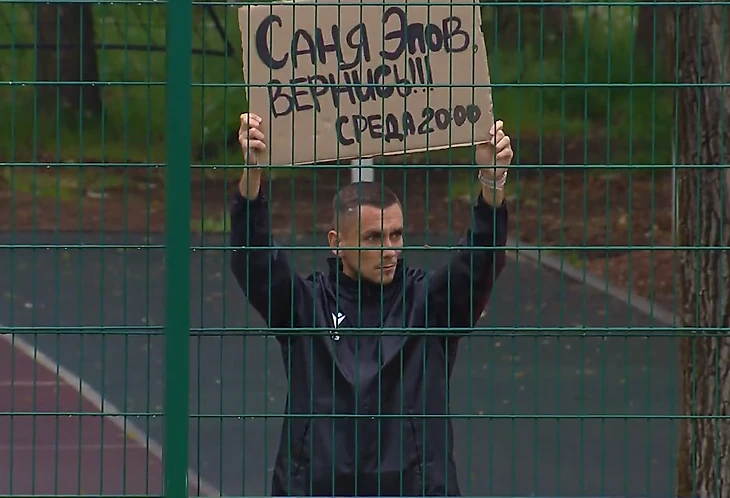 САНЯ ЭПОВ,
ВЕРНИСЬ!!!
СРЕДА 20:00